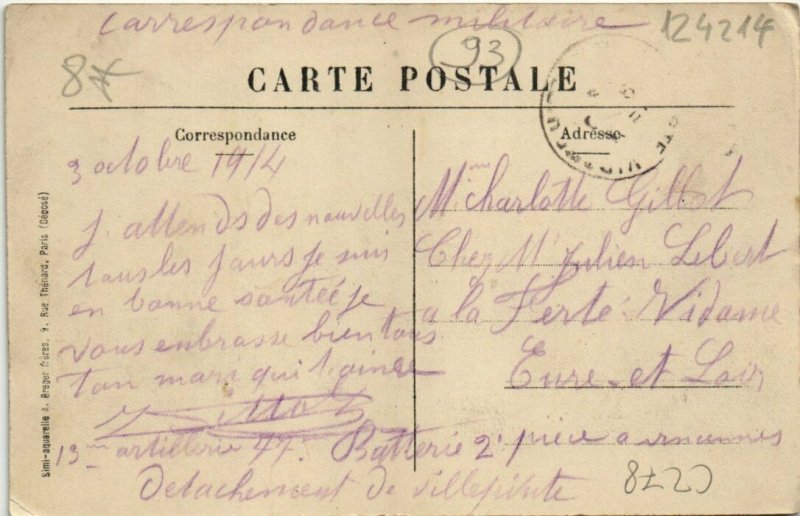 Carrespondance militaire
124214
93
8*
CARTE POSTALE
Correspondance
Adresse
3 octobre 1914
j. attends des nouvelles
tous les jours je suis
en bonne santée je
vous enbrasse bien tous
ton mari qui t'aime
Mme Charlotte Gilbot
Chez Mr Julien Lebert
a la Ferté-Vidame
Eure-et Loir
13me artillerie 77e Batterie 2e pièce a vincennes
Detachement de villepinte
Simi-aquarelle A. Breger frères, 9, Rue Thénard, Paris (Déposé)